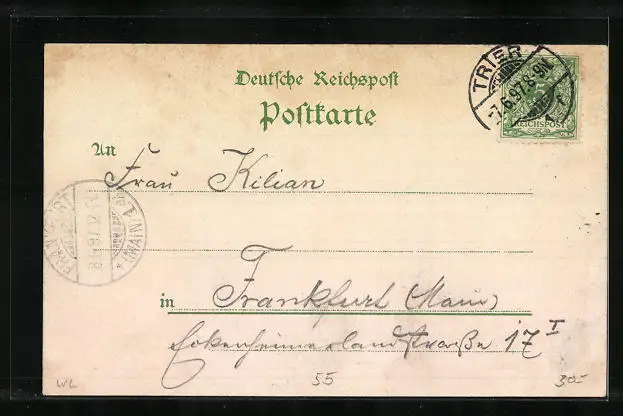 Deutsche Reichspost
Postkarte
TRIER
-7.6.97.8-9N.
REICHSPOST
An
Frau Kilian
in Frankfurt (Main)
Eckenheimerlandstraße 17 I
WL
55
30.-